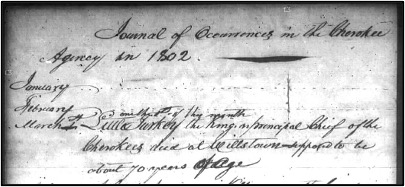 Journal of Occurrences in the Cherokee
Agency in 1802.
January
February
of this month
March Little Turkey the King or principal Chief of the
Cherokees died at Willstown supposed to be
about 70 years of Age